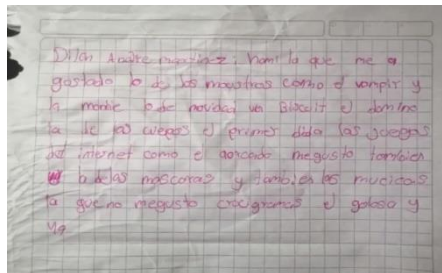 Dilan Andre martinez: homi la que me a
gastado lo de los moustros como el vampir y
la momie lo de navidad un Biscoit el domino
la de los cuegos el primer dida las juegos
del internet como el aorcondo megusto tambien
lo de las mascaras y tambien las mucicas
la que no megusto crocigramas el goloso y
ya